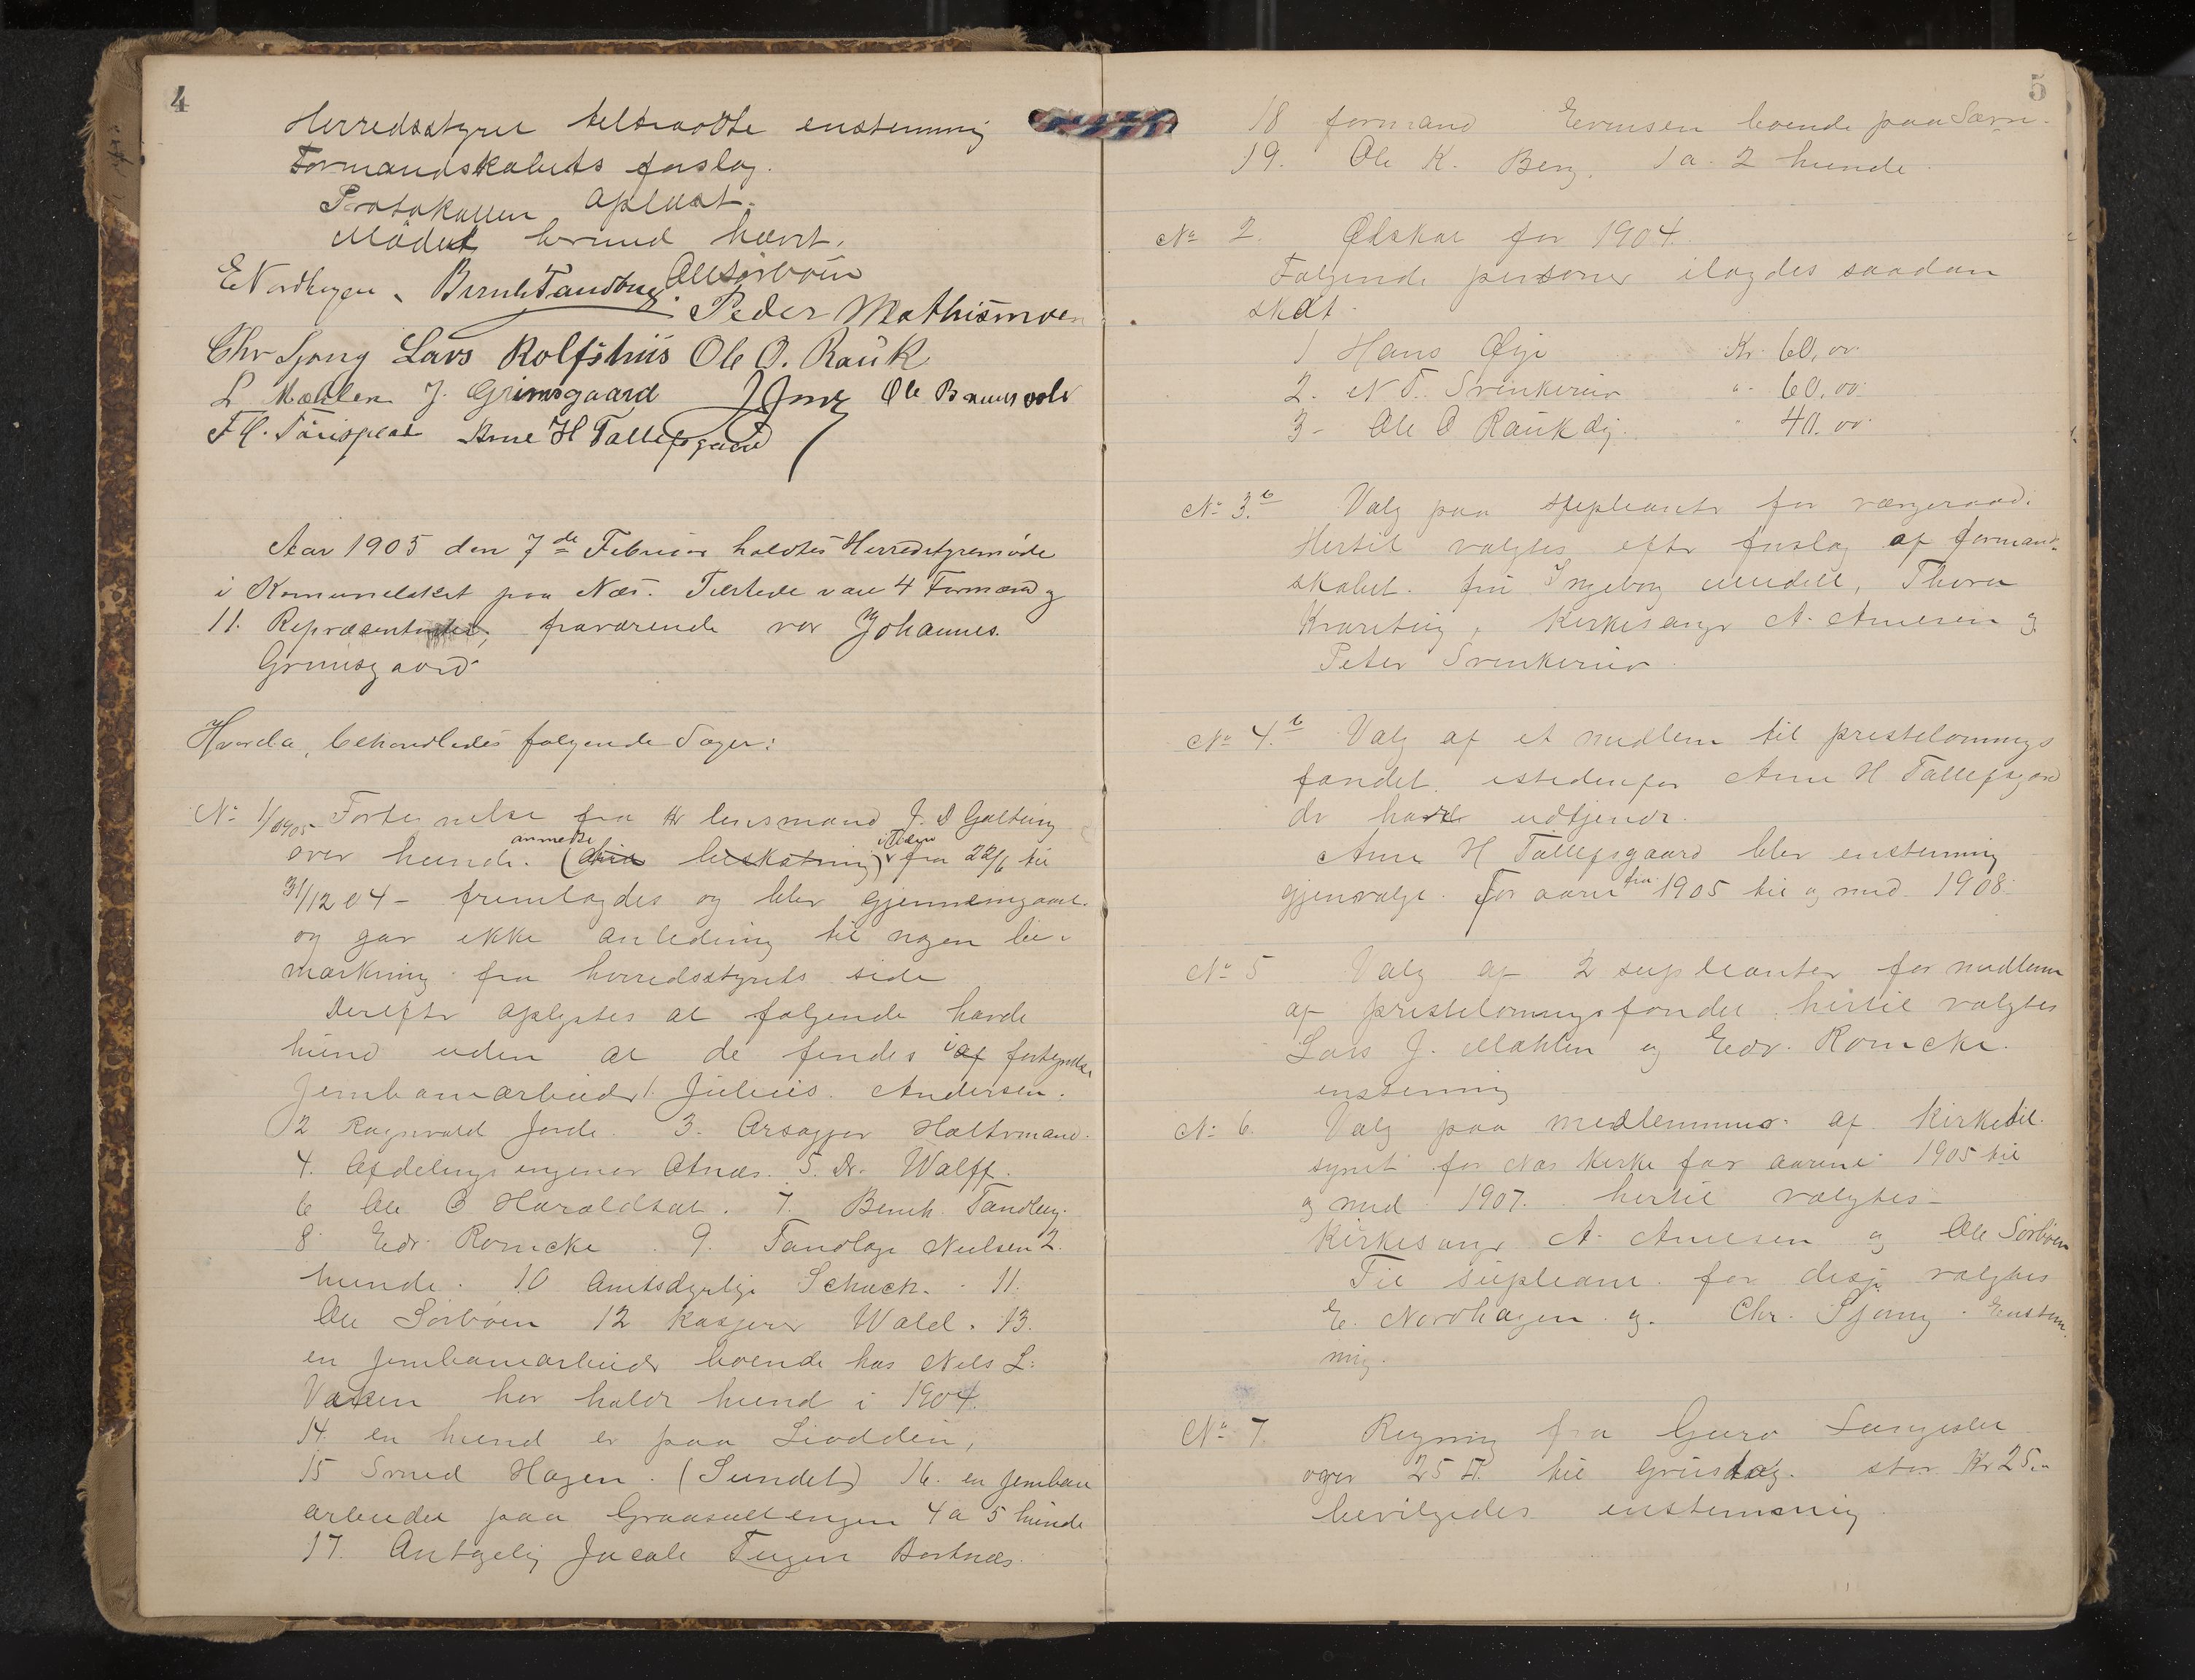 4
Herredsstyret tiltraadte enstemmig
Formandskabets forslag.
Protokollen oplæst.
Mødet hermed hævet.
E Nordhagen. Bernh Tandberg. Ole Sørbøen
Peder Mathismoen
Chr Sjong Lars Rolfshus Ole O. Rauk
L Mæhlen J. Grimsgaard Ole
Arne H Tollefsgaard
Aar 1905 den 7de Februar holdtes Herredstyremøde
i Komuneloket paa Næs. Tilstede var 4 Formænd og
11. Repræsentanter, fraværende var Johannes
Grimsgaard
Hvorda, behandledes følgende Sager:
No 1/1905 Fortegnelse fra Hr lensmand J. D Gulteng
over hunde. (anmeldte beskatning) i Tiden fra 22/6 til
31/12 04 – fremlagdes og blev gjennemgaaet.
og gav ikke anledning til nogen be-
mærkning fra herredsstyrets side
Derefter oplystes at følgende havde
hund uden at de findes i af fortegnelse
Jernbanearbeider 1. Julius Andersen.
2 Ragnvald Jorde. 3. Holtermand.
4. Afdelings ingeniør Atnæs. 5. Dr. Wolff.
6 Ole O Haraldset. 7. Bernh. Tandberg.
8 Edv. Romcke. 9. Tandlæge Nielsen 2.
hunde. 10 Amtsdyrlæge Schack. 11.
Ole Sørbøen 12 kasserer Wold. 13.
en jernbanearbeider boende hos Nils L.
har holdt hund i 1904.
14. en hund er paa Liodden,
15 Svend Hagen. (Sundet) 16. en jernbane
arbeider paa 4 a 5 hunde
17. Jacob
5
18 formand Evensen boende paa
19. Ole K. Berg. 1 a. 2 hunde.
No 2. Ølskat for 1904.
Følgende personer ilagdes saadan
skat.
1 Hans Øye Kr. 60,00
2. N T. Svenkerud " 60,00
3 – Ole O Rauk " 40.00
No 3. Valg paa supleanter for værgeraad.
Hertil valgtes efter forslag af formand-
skabet. fru Ingeborg Thora
Kirkesanger A. Arnesen og
Peter Svenkerud.
No 4. Valg af et medlem til prestelønnings
fondet. istedenfor Arne H Tollefsgaard
der havde udtjent.
Arne H Tollefsgaard blev enstemmig
gjenvalgt. for aarene fra 1905 til og med 1908.
No 5 Valg af 2 supleanter for medlem
af prestelønningsfondet hertil valgtes
Lars J. Mæhlen og Edv. Romcke.
enstemmig
No 6. Valg paa medlemmer af kirketil-
synet for Næs kirke for aarene 1905 til
og med 1907. hertil valgtes –
Kirkesanger A. Arnesen og Ole Sørbøen
Til supleant for disse valgtes
E. Nordhagen og Chr. Sjong. Enstem-
mig.
No 7. Regning fra Guro
over 25 til grustag. stor Kr 25.00
bevilgedes enstemmig.